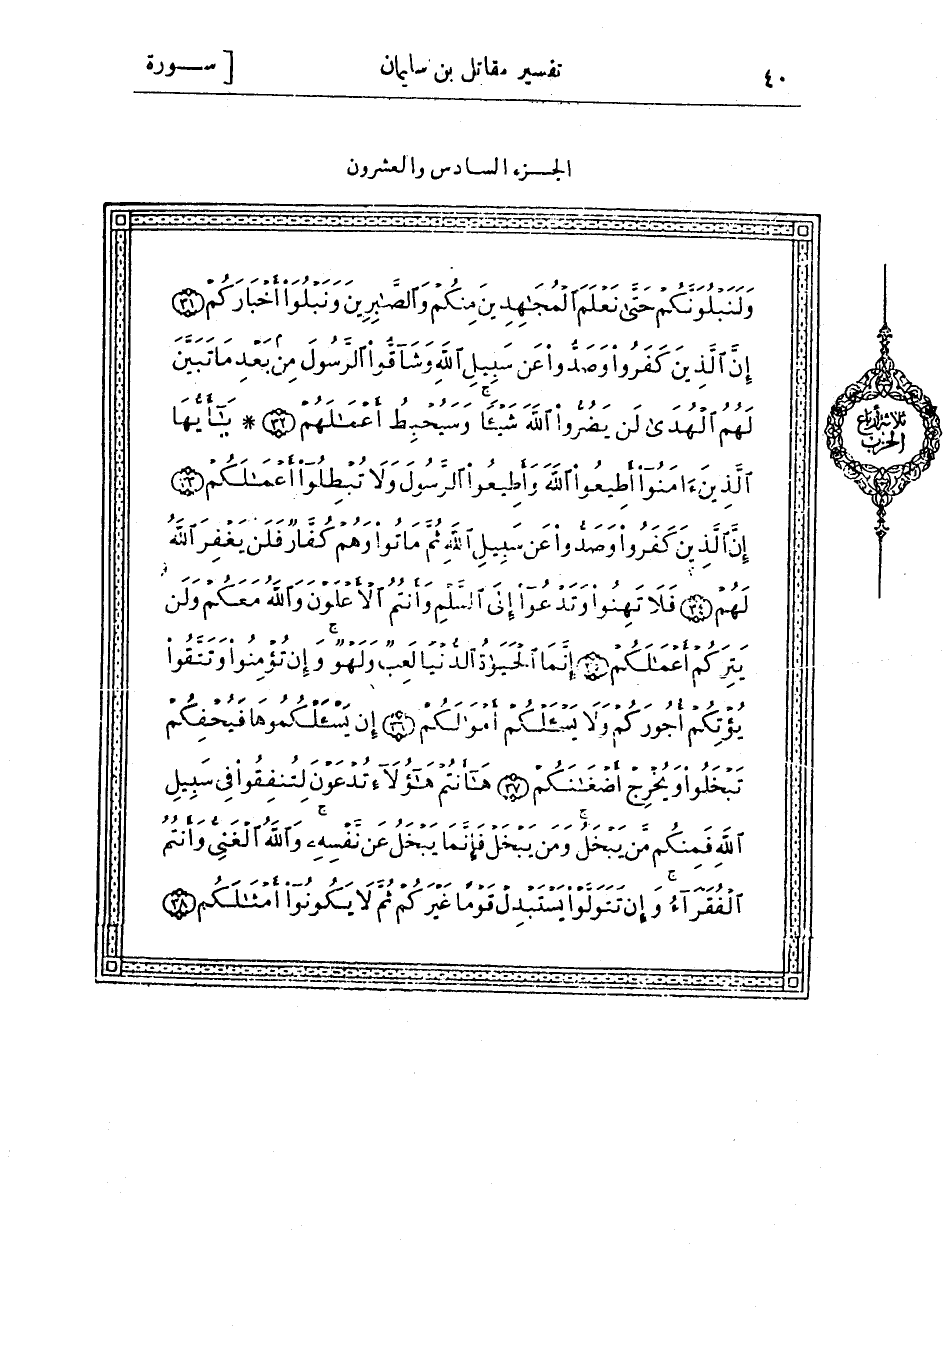 ٤٠
تفسير مقاتل بن سليمان
[ ســـورة
الجـــزء الســادس والعشرون
وَلَنَبْلُوَنَّكُمْ حَتَّىٰ نَعْلَمَ ٱلْمُجَٰهِدِينَ مِنكُمْ وَٱلصَّٰبِرِينَ وَنَبْلُوَا۟ أَخْبَارَكُمْ ٣١
إِنَّ ٱلَّذِينَ كَفَرُوا۟ وَصَدُّوا۟ عَن سَبِيلِ ٱللَّهِ وَشَآقُّوا۟ ٱلرَّسُولَ مِنۢ بَعْدِ مَا تَبَيَّنَ
لَهُمُ ٱلْهُدَىٰ لَن يَضُرُّوا۟ ٱللَّهَ شَيْـًٔا ۖ وَسَيُحْبِطُ أَعْمَٰلَهُمْ ٣٢ * يَٰٓأَيُّهَا
ٱلَّذِينَ ءَامَنُوٓا۟ أَطِيعُوا۟ ٱللَّهَ وَأَطِيعُوا۟ ٱلرَّسُولَ وَلَا تُبْطِلُوٓا۟ أَعْمَٰلَكُمْ ٣٣
إِنَّ ٱلَّذِينَ كَفَرُوا۟ وَصَدُّوا۟ عَن سَبِيلِ ٱللَّهِ ثُمَّ مَاتُوا۟ وَهُمْ كُفَّارٌ فَلَن يَغْفِرَ ٱللَّهُ
لَهُمْ ٣٤ فَلَا تَهِنُوا۟ وَتَدْعُوٓا۟ إِلَى ٱلسَّلْمِ وَأَنتُمُ ٱلْأَعْلَوْنَ وَٱللَّهُ مَعَكُمْ وَلَن
يَتِرَكُمْ أَعْمَٰلَكُمْ ٣٥ إِنَّمَا ٱلْحَيَوٰةُ ٱلدُّنْيَا لَعِبٌ وَلَهْوٌ ۚ وَإِن تُؤْمِنُوا۟ وَتَتَّقُوا۟
يُؤْتِكُمْ أُجُورَكُمْ وَلَا يَسْـَٔلْكُمْ أَمْوَٰلَكُمْ ٣٦ إِن يَسْـَٔلْكُمُوهَا فَيُحْفِكُمْ
تَبْخَلُوا۟ وَيُخْرِجْ أَضْغَٰنَكُمْ ٣٧ هَٰٓأَنتُمْ هَٰٓؤُلَآءِ تُدْعَوْنَ لِتُنفِقُوا۟ فِى سَبِيلِ
ٱللَّهِ فَمِنكُم مَّن يَبْخَلُ ۖ وَمَن يَبْخَلْ فَإِنَّمَا يَبْخَلُ عَن نَّفْسِهِۦ ۚ وَٱللَّهُ ٱلْغَنِىُّ وَأَنتُمُ
ٱلْفُقَرَآءُ ۚ وَإِن تَتَوَلَّوْا۟ يَسْتَبْدِلْ قَوْمًا غَيْرَكُمْ ثُمَّ لَا يَكُونُوٓا۟ أَمْثَٰلَكُم ٣٨
ثلاثة أرباع
الحزب